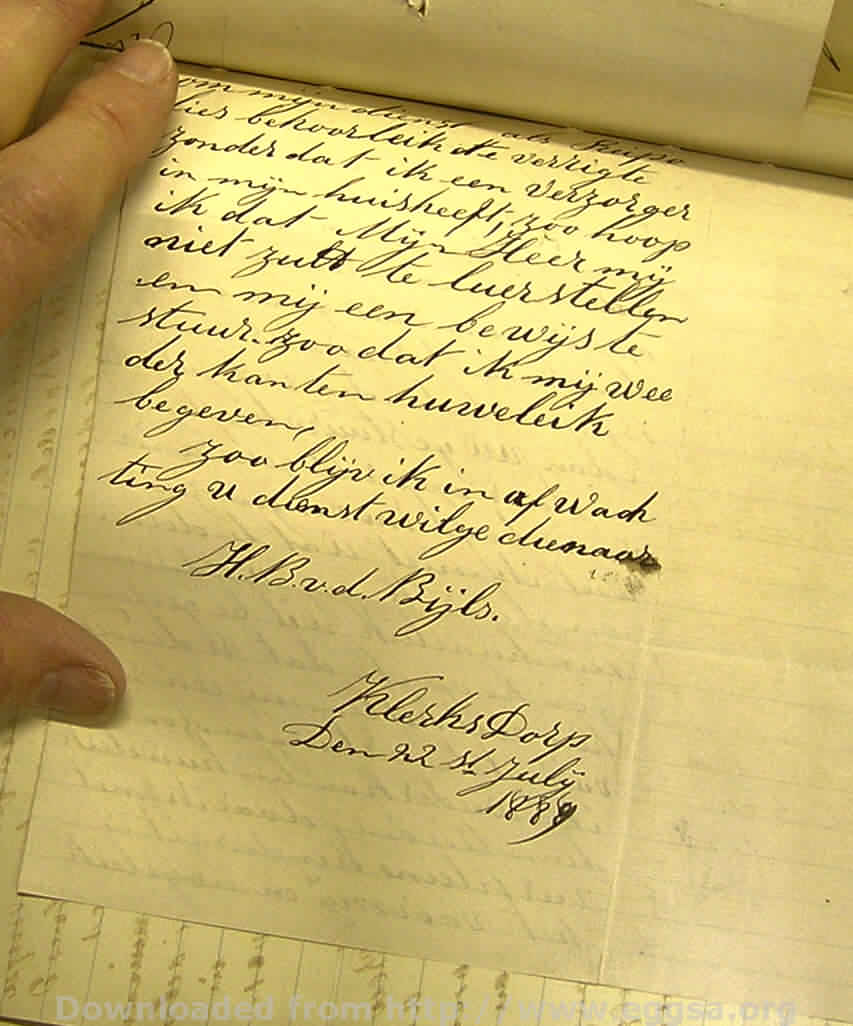 om mijn dienst als Kuipo
lies behoorleik te verrigte
zonder dat ik een verzorger
in mijn huis heeft, zoo hoop
ik dat Mijn Heer mij
niet zult te luer stellen
en mij een bewijs te
stuur. zoo dat ik mij wee
der kan ten huweleik
begeven,
zoo blijv ik in af wach
ting u dienst wilge dienaar
H. B. v. d. Bijls.
Klerks Dorp
Den 22 st July
1889
Downloaded from http://www.eggsa.org